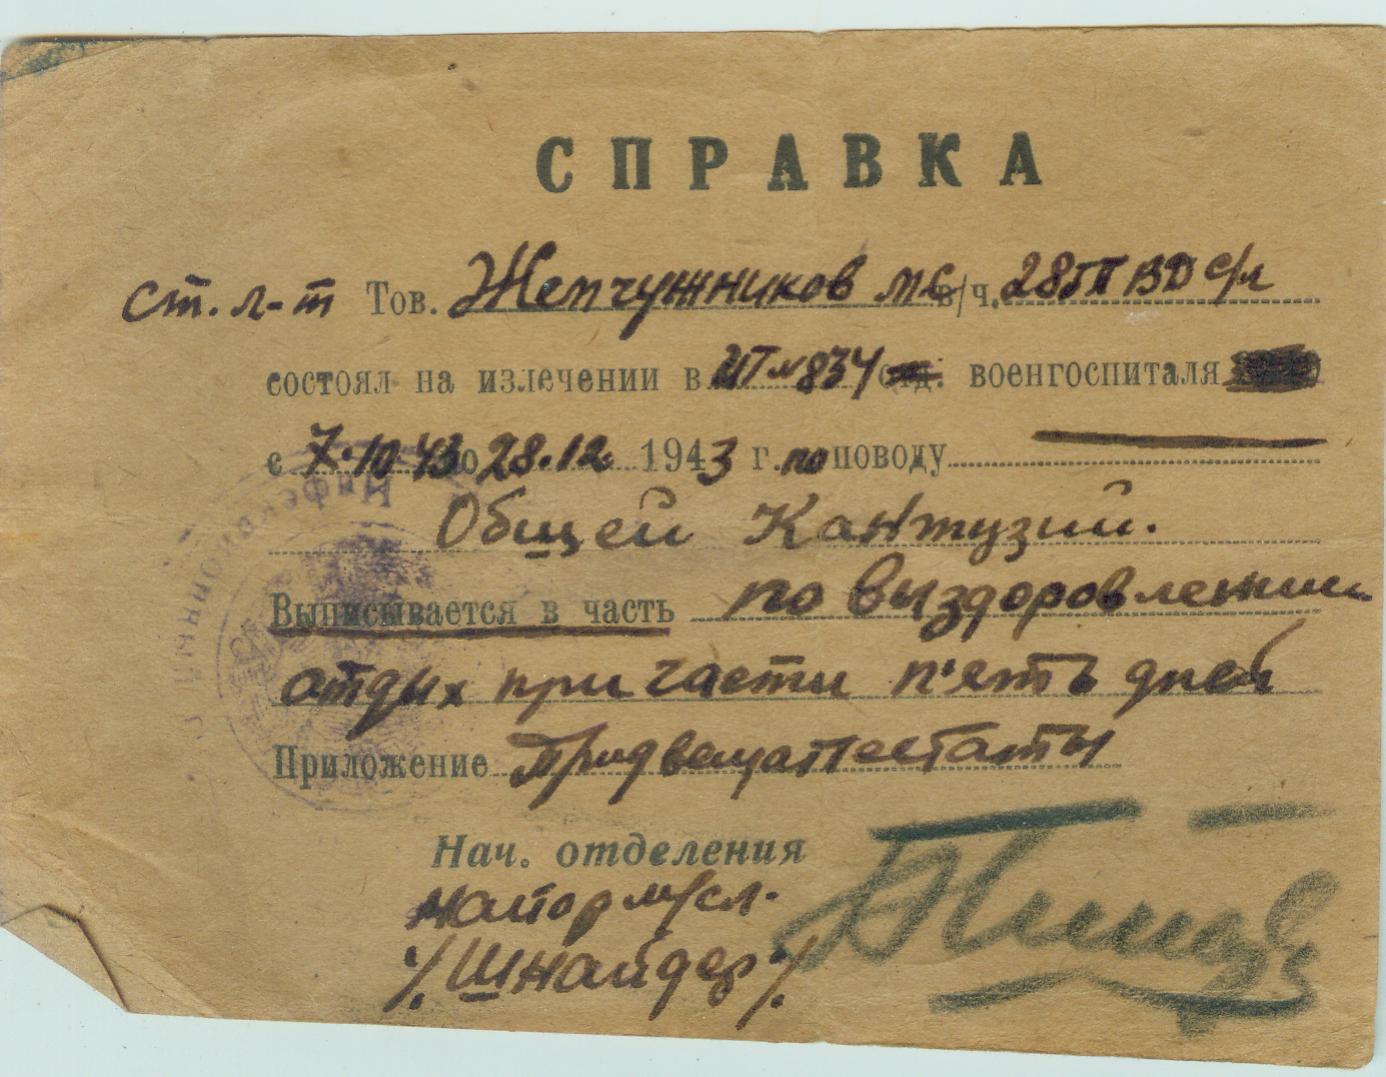 СПРАВКА
ст. л-т Тов. Жемчужников МС в/ч. 28 ГП ВД с/л
состоял на излечении в ИГ № 834 отд. военгоспиталя
с 7.10.43 по 28.12 1943 г. по поводу
Общей Кантузии.
Выписывается в часть по выздоровлении
отдых при части п'ять дней
Приложение
Нач. отделения
майор м/сл.
/Шнайдер/